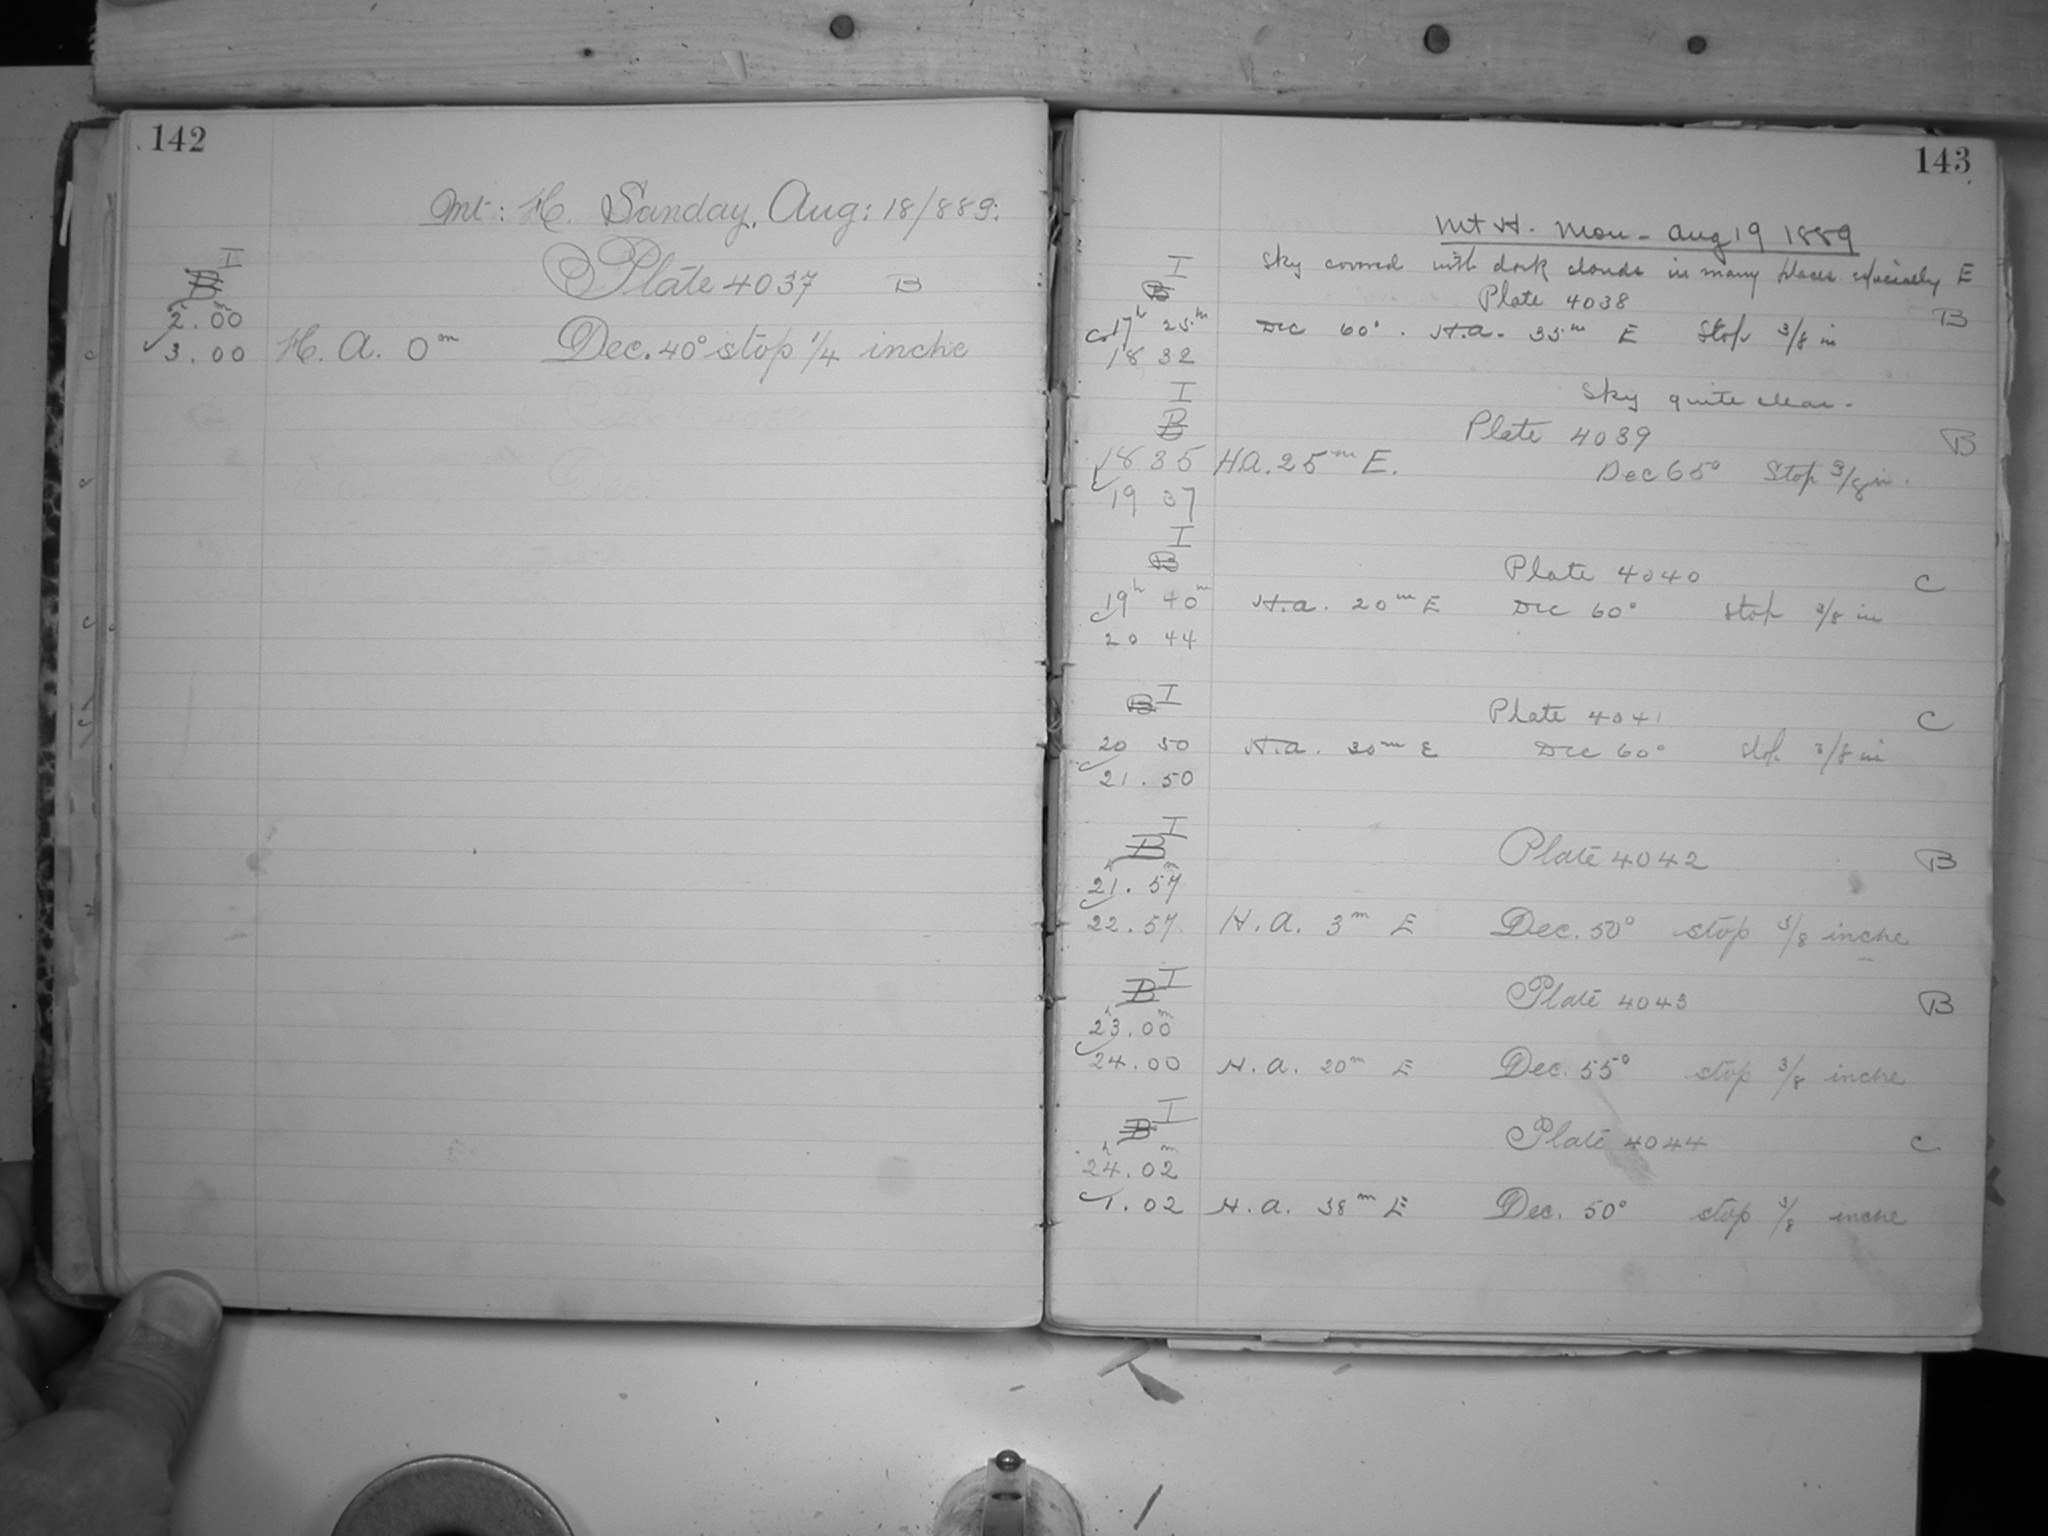 142
Mt: H. Sunday, Aug: 18/889:
I
B
Plate 4037 B
2h.00m
3.00 H. A. 0m Dec. 40° stop 1/4 inche
143
Mt H. Mon - Aug 19 1889
I
Sky covered with dark clouds in many places especially E
B
Plate 4038 B
17h 25m Dec 60°. H.a. 35m E Stop 3/8 in
18 32
I
Sky quite clear -
B
Plate 4039 B
18 35 H.A. 25m E. Dec 65° Stop 3/8 in.
19 37
I
B
Plate 4040 C
19h 40m H.a. 20m E Dec 60° stop 3/8 in
20 44
B I
Plate 4041 C
20 50 H.a. 30m E Dec 60° stop 3/8 in
21.50
I
B
Plate 4042 B
21h.57m
22.57 H.A. 3m E Dec. 50° stop 3/8 inche
B I
Plate 4043 B
23h.00m
24.00 H.a. 20m E Dec. 55° stop 3/8 inche
I
B
Plate 4044 C
24h.02m
1.02 H.a. 38m E Dec. 50° stop 3/8 inche